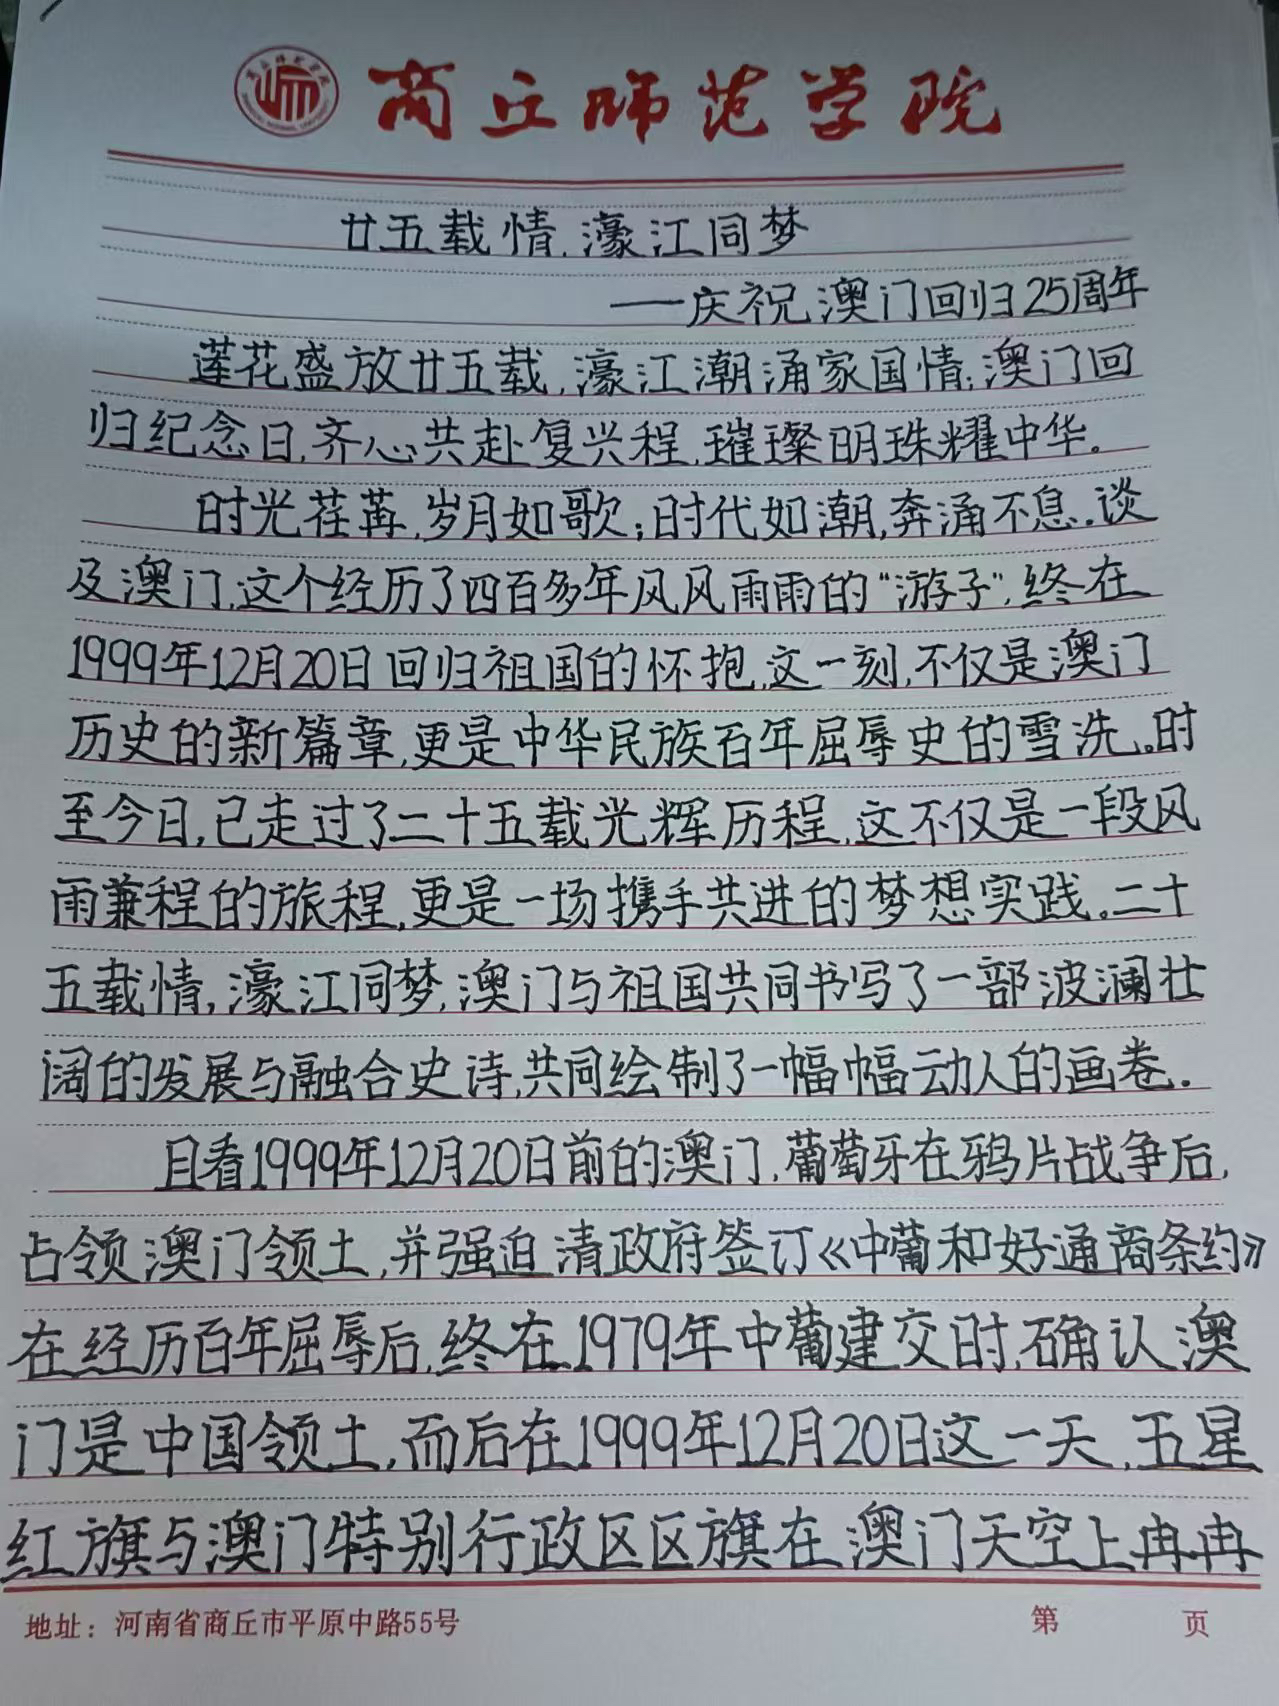 商丘师范学院
廿五载情,濠江同梦
——庆祝澳门回归25周年
莲花盛放廿五载,濠江潮涌家国情;澳门回
归纪念日,齐心共赴复兴程,璀璨明珠耀中华。
时光荏苒,岁月如歌;时代如潮,奔涌不息.谈
及澳门,这个经历了四百多年风风雨雨的“游子”,终在
1999年12月20日回归祖国的怀抱,这一刻,不仅是澳门
历史的新篇章,更是中华民族百年屈辱史的雪洗。时
至今日,已走过了二十五载光辉历程,这不仅是一段风
雨兼程的旅程,更是一场携手共进的梦想实践。二十
五载情,濠江同梦,澳门与祖国共同书写了一部波澜壮
阔的发展与融合史诗,共同绘制了一幅幅动人的画卷.
且看1999年12月20日前的澳门,葡萄牙在鸦片战争后,
占领澳门领土,并强迫清政府签订《中葡和好通商条约》
在经历百年屈辱后,终在1979年中葡建交时,确认澳
门是中国领土,而后在1999年12月20日这一天,五星
红旗与澳门特别行政区区旗在澳门天空上冉冉
地址：河南省商丘市平原中路55号 第 页